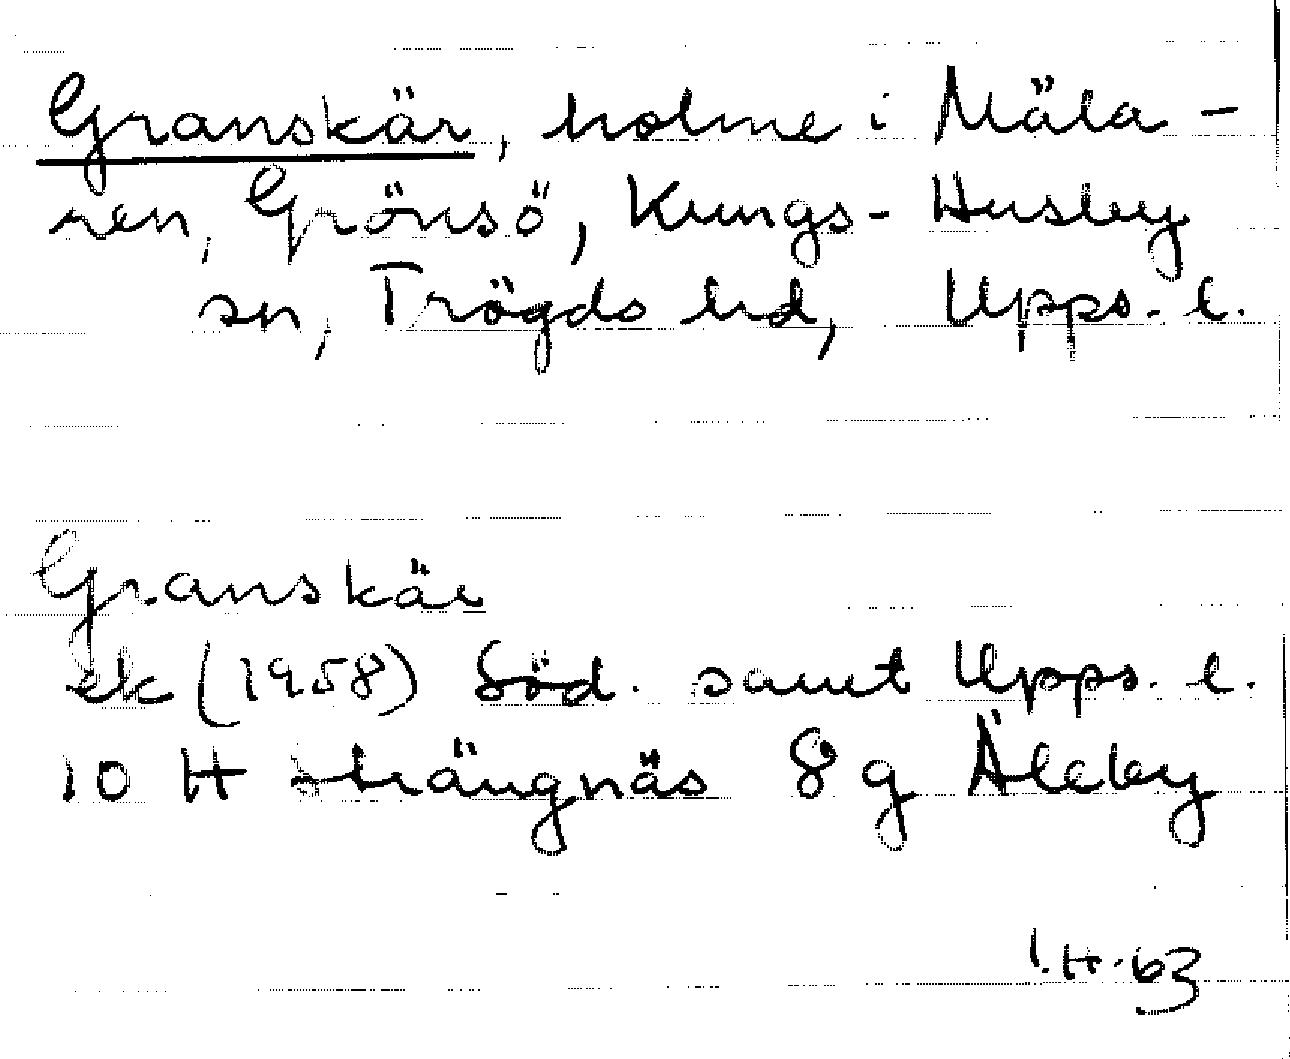 Granskär, holme i Mäla-
ren, Grönsö, Kungs-Husby
sn, Trögds hd, Upps. l.
Granskär
ek (1958) Söd. samt Upps. l.
10 H Strängnäs 8 g Älby
I.H. 63